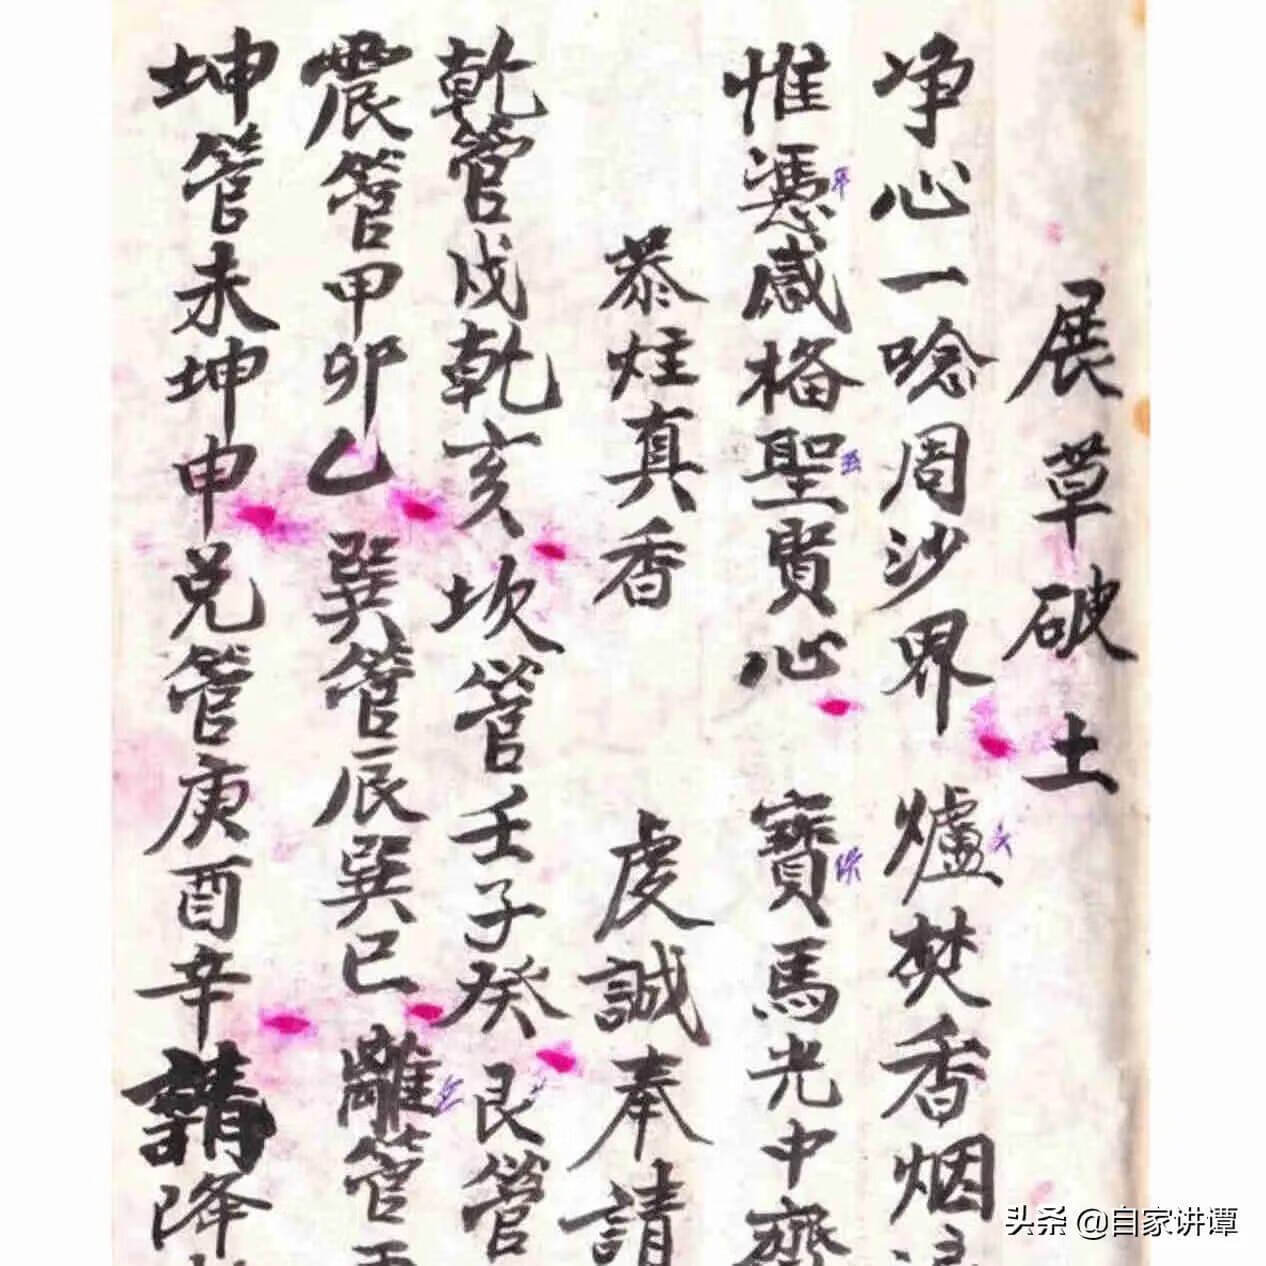 展草破土
净心一唸周沙界 爐焚香烟
惟憑感格聖賢心 寶馬光中齊
恭炷真香 虔誠奉請
乾管戌乾亥坎管壬子癸艮管
震管甲卯乙巽管辰巽巳離管
坤管未坤申兌管庚酉辛請降
头条 @自家讲谭